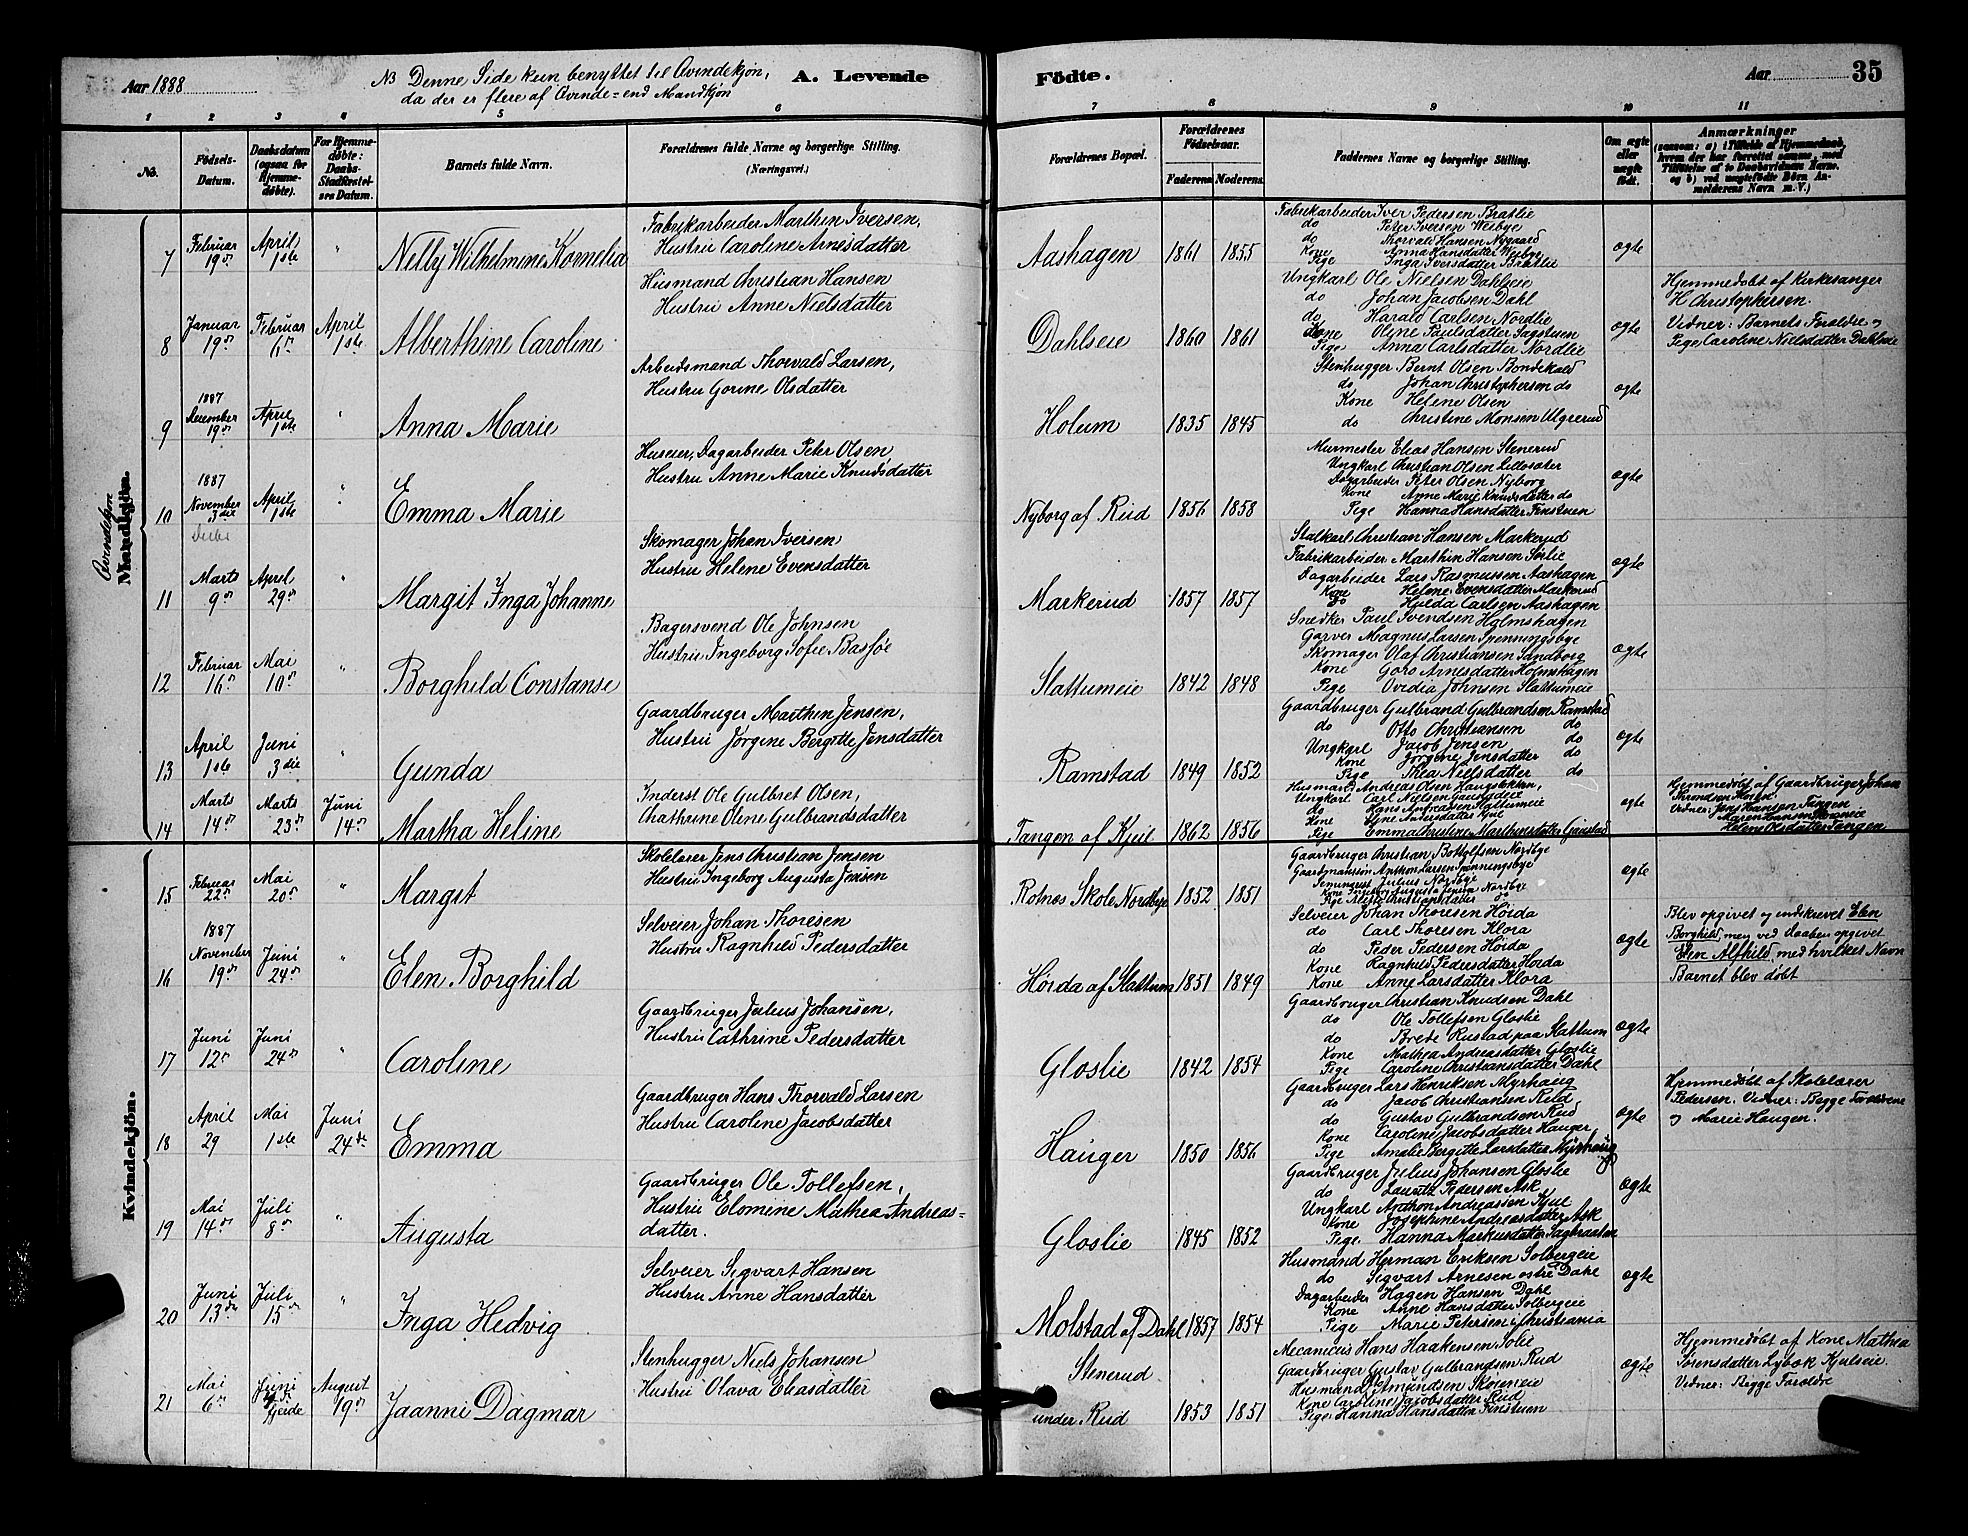 Aar 1888
NB Denne Side kun benyttet til Qvindekjøn,
da der er flere af Qvinde= end Mandkjøn
A. Levende Födte.
Aar 35
1 2 3 4 5 6 7 8 9 10 11
No.
Födsels-Datum.
Daabsdatum (ogsaa for Hjemme-døbte).
For Hjemme-døbte: Daabs-Stadfæstel-ses Datum.
Barnets fulde Navn.
Forældrenes fulde Navne og borgerlige Stilling. (Næringsvei.)
Forældrenes Bopæl.
Forældrenes Födselsaar.
Faderens. Moderens.
Faddernes Navne og borgerlige Stilling.
Om ægte eller uægte født.
Anmærkninger
(saasom: a) i Tilfælde af Hjemmedaab, hvem der har forrettet samme, med Tilføielse af to Daabsvidners Navne, og b) ved uægtefødte Börn An-melderens Navn m. V.)
Qvindekjøn
Mandkjön.
7 Februar 19de April 1ste " Nelly Wilhelmine Kornelia
Fabrikarbeider Marthin Iversen,
Hustru Caroline Arnesdatter
Aashagen 1861 1855
Fabrikarbeider Iver Pedersen Bratlie
do Peter Iversen Weibye
do Thorvald Hansen Nygaard
Kone Anna Hansdatter Weibye
Pige Inga Iversdatter Bratlie
ægte
8 Januar 19de Februar 6te April 1ste Alberthine Caroline
Husmand Christian Hansen
Hustru Anne Nielsdatter
Dahlseie 1860 1861
Ungkarl Ole Nielsen Dahlseie
do Johan Jacobsen Dahl
do Harald Carlsen Nordlie
Kone Oline Paulsdatter Sagstuen
Pige Anna Carlsdatter Nordlie
ægte
Hjemmedøbt af Kirkesanger
H. Christophersen.
Vidner: Barnets Forældre og
Pige Caroline Nielsdatter Dahlseie
9 1887 December 19de April 1ste " Anna Marie
Arbeidsmand Thorvald Larsen,
Hustru Gorine Olsdatter
Holum 1835 1845
Stenhugger Bernt Olsen Bondekald
do Johan Christophersen do
Kone Helene Olsen
do Christine Monsen Ulgrerud
ægte
10 1887 November 3die April 1ste " Emma Marie
Huseier, Dagarbeider Peter Olsen
Hustru Anne Marie Knudsdatter
Nyborg af Rud 1856 1858
Murmester Elias Hansen Stenerud
Ungkarl Christian Olsen Lillesæter
Dagarbeider Peter Olsen Nyborg
Kone Anne Marie Knudsdatter do
Pige Hanna Hansdatter Finstuen
ægte
11 Marts 9de April 29de " Margit Inga Johanne
Skomager Johan Iversen
Hustru Helene Evensdatter
Markerud 1857 1857
Stalkarl Christian Hansen Markerud
Fabrikarbeider Marthin Hansen Sørlie
Dagarbeider Lars Rasmussen Aashagen
Kone Helene Evensdatter Markerud
do Hjelda Carlsen Aashagen
ægte
12 Februar 16de Mai 10de " Borghild Constanse
Bagersvend Ole Johnsen
Hustru Ingeborg Sofie Basjøe
Slattumeie 1842 1848
Snedker Paul Svendsen Holmshagen
Garver Magnus Larsen Spenningsbye
Skomager Olaf Christiansen Sandborg
Kone Goro Arnesdatter Holmshagen
Pige Ovidia Johnsen Slattumeie
ægte
13 April 1ste Juni 3die " Gunda
Gaardbruger Marthin Jensen,
Hustru Jørgine Bergitte Jensdatter
Ramstad 1849 1852
Gaardbruger Gulbrand Gulbrandsen Ramstad
do Otto Christiansen do
Ungkarl Jacob Jensen do
Kone Jørgine Jensdatter do
Pige Thea Nielsdatter do
ægte
14 Marts 14de Marts 23de Juni 14de Martha Heline
Inderst Ole Gulbret Olsen,
Chathrine Oline Gulbrandsdatter
Tangen af Kjeie 1862 1856
Husmand Andreas Olsen Haugsbakken,
Ungkarl Carl Nielsen
do Hans Andreassen Slattumeie
Kone
Pige Emma Christine Marthinsdatter
ægte
Hjemmedøbt af Gaardbruger Johan
Throndsen Moen.
Vidner: Jens Hansen Tangen
Maren Hansen
Helene Olsdatter Tangen
Kvindekjön.
15 Februar 22de Mai 20de " Margit
Skolelærer Jens Christian Jensen
Hustru Ingeborg Augusta Jensen
Rotnes Skole Nordbye 1852 1851
Gaardbruger Christian Bottolfsen Nordbye
Gaardmandssøn Anthon Larsen Spenningsbye
Seminarist Julius Nordbye
Kone Ingeborg Augusta Jensen Nordbye
Pige
ægte
16 1887 November 19de Juni 24de " Elen Borghild
Selveier Johan Thoresen
Hustru Ragnhild Pedersdatter
Høida af Slattum 1851 1849
Selveier Johan Thoresen Høida
do Carl Thoresen Klora
do Peder Pedersen Høida
Kone Ragnhild Pedersdatter Høida
Kone Anne Larsdatter Klora
ægte
Blev opgivet og indskrevet Elen
Borghild, men ved daaben opgivet
Elen Alfhild, med hvilket Navn
Barnet blev døbt
17 Juni 12de Juni 24de " Caroline
Gaardbruger Julius Johansen,
Hustru Cathrine Pedersdatter
Gloslie 1842 1854
Gaardbruger Christian Knudsen Dahl
do Ole Tollefsen Gloslie
do Brede Rustad paa Slattum
Kone Mathea Andreasdatter Gloslie
Pige Caroline Christiansdatter Dahl
ægte
18 April 29 Mai 1ste Juni 24de Emma
Gaardbruger Hans Thorvald Larsen
Hustru Caroline Jacobsdatter
Hauger 1850 1856
Gaardbruger Lars Henriksen Myrhaug
do Jacob Christiansen Rud
do Gustav Gulbrandsen Rud
Kone Caroline Jacobsdatter Hauger
Pige Amalie Bergitte Larsdatter Myrhaug
ægte
Hjemmedøbt af Skolelærer
Pedersen. Vidner: Begge Forældrene
og Marie Haugen.
19 Mai 14de Juli 8de " Augusta
Gaardbruger Ole Tollefsen,
Hustru Elomine Mathea Andreas=
datter.
Gloslie 1845 1852
Gaardbruger Julius Johansen Gloslie
do Lauritz Pedersen Ask
Ungkarl Anthon Andreassen Kjul
Kone Josephine Andreasdatter Ask
Pige Hanna Markusdatter Sagbraaten
ægte
20 Juni 13de Juli 15de " Inga Hedvig
Selveier Sigvart Hansen
Hustru Anne Hansdatter
Molstad af Dahl 1857 1854
Husmand Herman Eriksen Solbergeie
do Sigvart Arnesen østre Dahl
Dagarbeider Hagen Hansen Dahl
Kone Anne Hansdatter Solbergeie
Pige Marie Petersen i Christiania
ægte
21 Mai 6te Juni fjerde August 19de Jaanni Dagmar
Stenhugger Niels Johansen
Hustru Olava Eliasdatter
Stenerud
under Rud 1853 1851
Mecanicus Hans Haakensen Solie
Gaardbruger Gustav Gulbrandsen Rud
Husmand Amundsen Skoreneie
Kone Caroline Jacobsdatter Rud
Pige Hanna Hansdatter Finstuen
ægte
Hjemmedøbt af Kone Mathea
Sørensdatter Lybæk Kjulseie.
Vidner: Begge Forældre